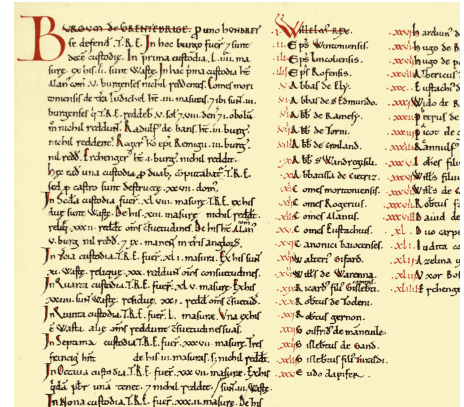 BURGUM de GRENTEBRIGE p uno HUNDRET
se defend. T.R.E. In hoc burgo fuer 7 sunt
decē custodiæ. In prima custodia. L.IIII. ma
suræ. ex his. II. sunt Wastæ. In hac prima custodia ht
Alan com. V. burgenses nichil reddentes. Comes mori
toniensis de tra Iudichel ht. III. masuras. 7 ibi sun. III.
burgenses q T.R.E. reddeb
m nichil reddunt. Radulf de bans. ht. III. burg.
nichil reddent. Roger hō epi Remigii. III. burg.
nil redd. Erchenger ht. I. burg. nichil reddit.
Hec ead una custodia p duab computabat T.R.E.
sed p castro sunt destructe. XXVII. dom.
In Scda custodia fuer. XL VIII. masuræ. T.R.E. ex his
duæ sunt Wastæ. De his. XIII. masuræ nichil reddt.
reliq. XXX II. reddt oms c̄suetudines. De his ht Alan
V. burg nil redd. 7 IX. manent in tra angloz.
In tcia custodia T.R.E. fuer. XL I. masura. Ex his sun
XI. Wastæ. reliquæ. XXX. reddun oms consuetudines.
In Quarta custodia T.R.E. fuer. XL V. masuræ. Ex his
XXIIII. sun Wastæ. reliquæ. XXI. reddt oms c̄suetud.
In Quinta custodia T.R.E. fuer. L. masuræ. Una ex his
ē Wasta. aliæ oms reddunt c̄suetudines suas.
In Septima custodia T.R.E. fuer. XXX VII masuræ. Tres
francig hnt de his III. masuras. s; nichil reddt.
In Octava custodia T.R.E. fuer. XXX VII. masuræ.
qdā pbr unā tenet. 7 nichil reddit. sun. III. Wastæ.
In Nona custodia T.R.E. fuer. XXX.II. masuræ. De his
.I. Willelm REX.
.II. Eps Wintoniensis.
.III. Eps Lincoliensis.
.IIII. Eps Rofensis.
.V. Abbas de Ely.
.VI. Abbas de S Edmundo.
.VII. Abbas de Ramesy.
.VIII. Abbas de Torni.
.IX. Abb de Croiland.
.X. Abb S Wandregisili.
.XI. Abbatissa de Cietriz.
.XII. Comes moritoniensis.
.XIII. Comes Rogerius.
.XIIII. Comes Alanus.
.XV. Comes Eustachius.
.XVI. Canonici baiocenses.
.XVII. Walteri Gifard.
.XVIII. Willi de Warenna.
.XIX. Ricard fili Gisleberti.
.XX. Robtus de Todeni.
.XXI. Robtus gernon.
.XXII. Goisfrid de manneuile.
.XXIII. Gislebtus de Gand.
.XXIIII. Gislebtus fili turaldi.
.XXV. Eudo dapifer.
.XXVI. harduin
.XXVII. hugo de B
.XXVIII. hugo de p
.XXIX. Albericus
.XXX. Eustachi
.XXXI. Wido de R
.XXXII. Petrus de
.XXXIII. Picot de
.XXXIIII. Rannulf
.XXXV. Iohes filiu
.XXXVI. Willi filiu
.XXXVII. Willi de
.XXXVIII. Robtus fa
.XXXIX. David de
.XL. Duo carpe
.XLI. Iudita co
.XLII. Azelina
.XLIII. Uxor Bo
.XLIIII. Erchenge